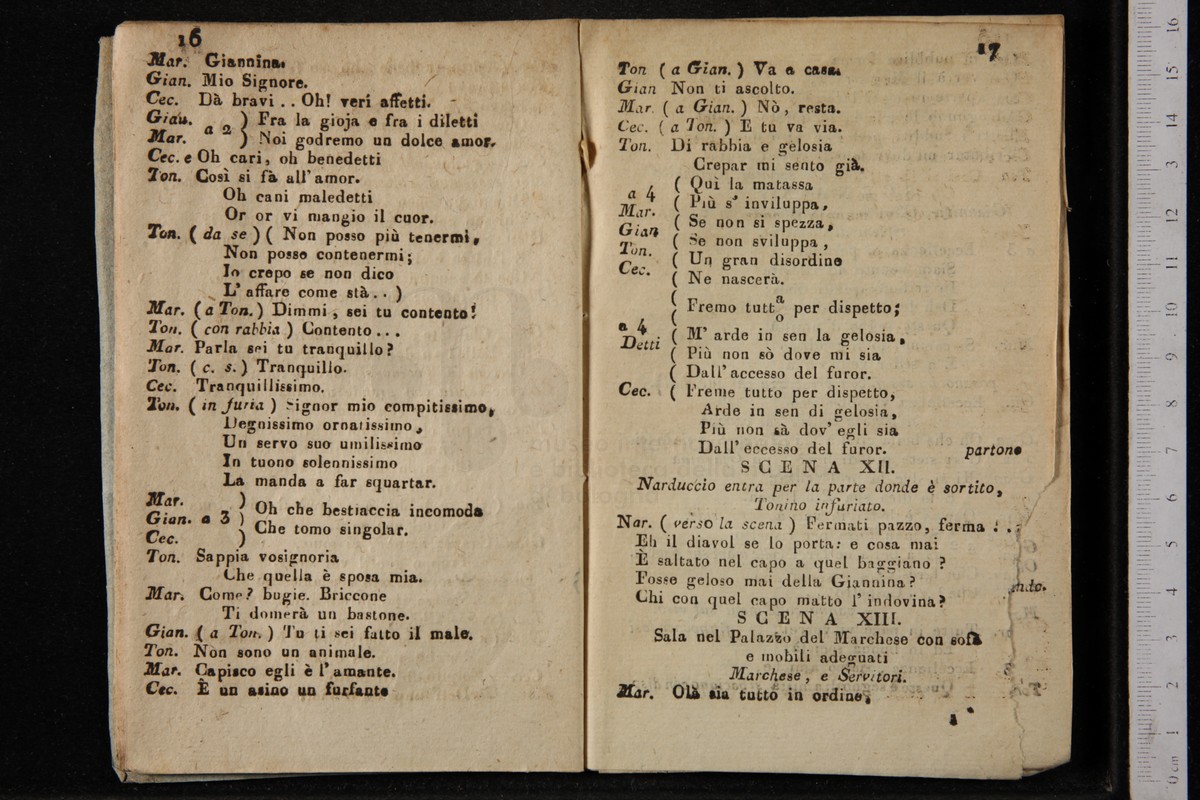 16
Mar. Giannina.
Gian. Mio Signore.
Cec. Dà bravi . . Oh! veri affetti.
Gian. ) Fra la gioja e fra i diletti
a 2
Mar. ) Noi godremo un dolce amor.
Cec. e Oh cari, oh benedetti
Ton. Così si fà all' amor.
Oh cani maledetti
Or or vi mangio il cuor.
Ton. ( da se ) ( Non posso più tenermi,
Non posso contenermi;
Io crepo se non dico
L' affare come stà . . )
Mar. ( a Ton. ) Dimmi, sei tu contento?
Ton. ( con rabbia ) Contento . . .
Mar. Parla sei tu tranquillo?
Ton. ( c. s. ) Tranquillo.
Cec. Tranquillissimo.
Ton. ( in furia ) Signor mio compitissimo,
Degnissimo ornatissimo,
Un servo suo umilissimo
In tuono solennissimo
La manda a far squartar.
Mar. )
Gian. a 3 ) Oh che bestiaccia incomoda
Cec. ) Che tomo singolar.
Ton. Sappia vosignoria
Che quella è sposa mia.
Mar. Come? bugie. Briccone
Ti domerà un bastone.
Gian. ( a Ton. ) Tu ti sei fatto il male.
Ton. Non sono un animale.
Mar. Capisco egli è l' amante.
Cec. È un asino un furfante
17
Ton ( a Gian. ) Va a casa.
Gian Non ti ascolto.
Mar. ( a Gian. ) Nò, resta.
Cec. ( a Ton. ) E tu va via.
Ton. Di rabbia e gelosia
Crepar mi sento già.
a 4 ( Quì la matassa
Mar. ( Più s' inviluppa,
Gian ( Se non si spezza,
Ton. ( Se non sviluppa,
Cec. ( Un gran disordine
( Ne nascerà.
( Fremo tutt a/o per dispetto;
a 4
Detti ( M' arde in sen la gelosia,
( Più non sò dove mi sia
( Dall' accesso del furor.
Cec. ( Freme tutto per dispetto,
Arde in sen di gelosia,
Più non sà dov' egli sia
Dall' eccesso del furor. partono
SCENA XII.
Narduccio entra per la parte donde è sortito,
Tonino infuriato.
Nar. ( verso la scena ) Fermati pazzo, ferma . . .
Eh il diavol se lo porta: e cosa mai
È saltato nel capo a quel baggiano ?
Fosse geloso mai della Giannina?
Chi con quel capo matto l' indovina?
SCENA XIII.
Sala nel Palazzo del Marchese con sofà
e mobili adeguati
Marchese, e Servitori.
Mar. Olà sia tutto in ordine,